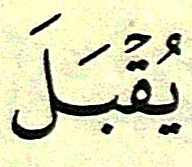 يُقۡبَلَ